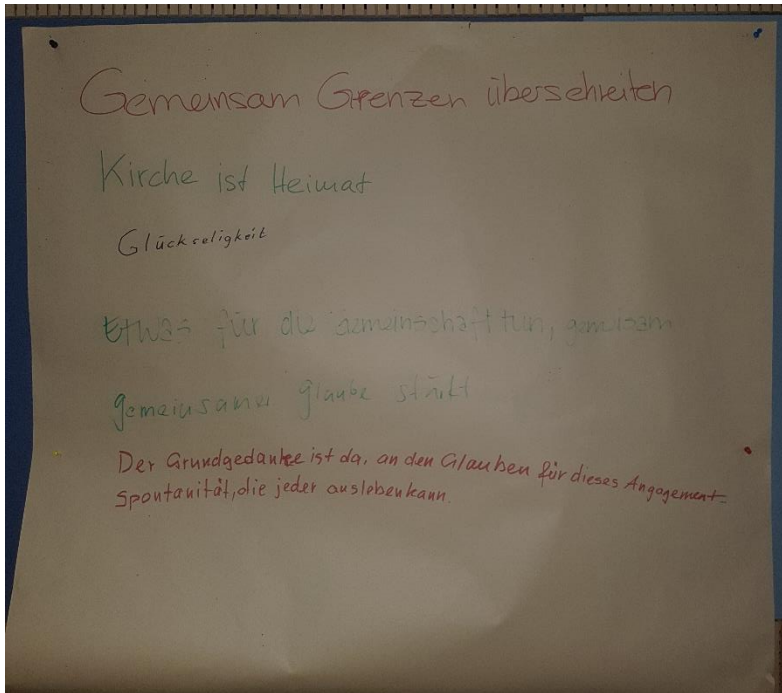 Gemeinsam Grenzen überschreiten
Kirche ist Heimat
Glückseligkeit
Etwas für die Gemeinschaft tun, gemeisam
gemeinsamer glaube stärkt
Der Grundgedanke ist da, an den Glauben für dieses Angagement-
Spontanität, die jeder auslebenkann.